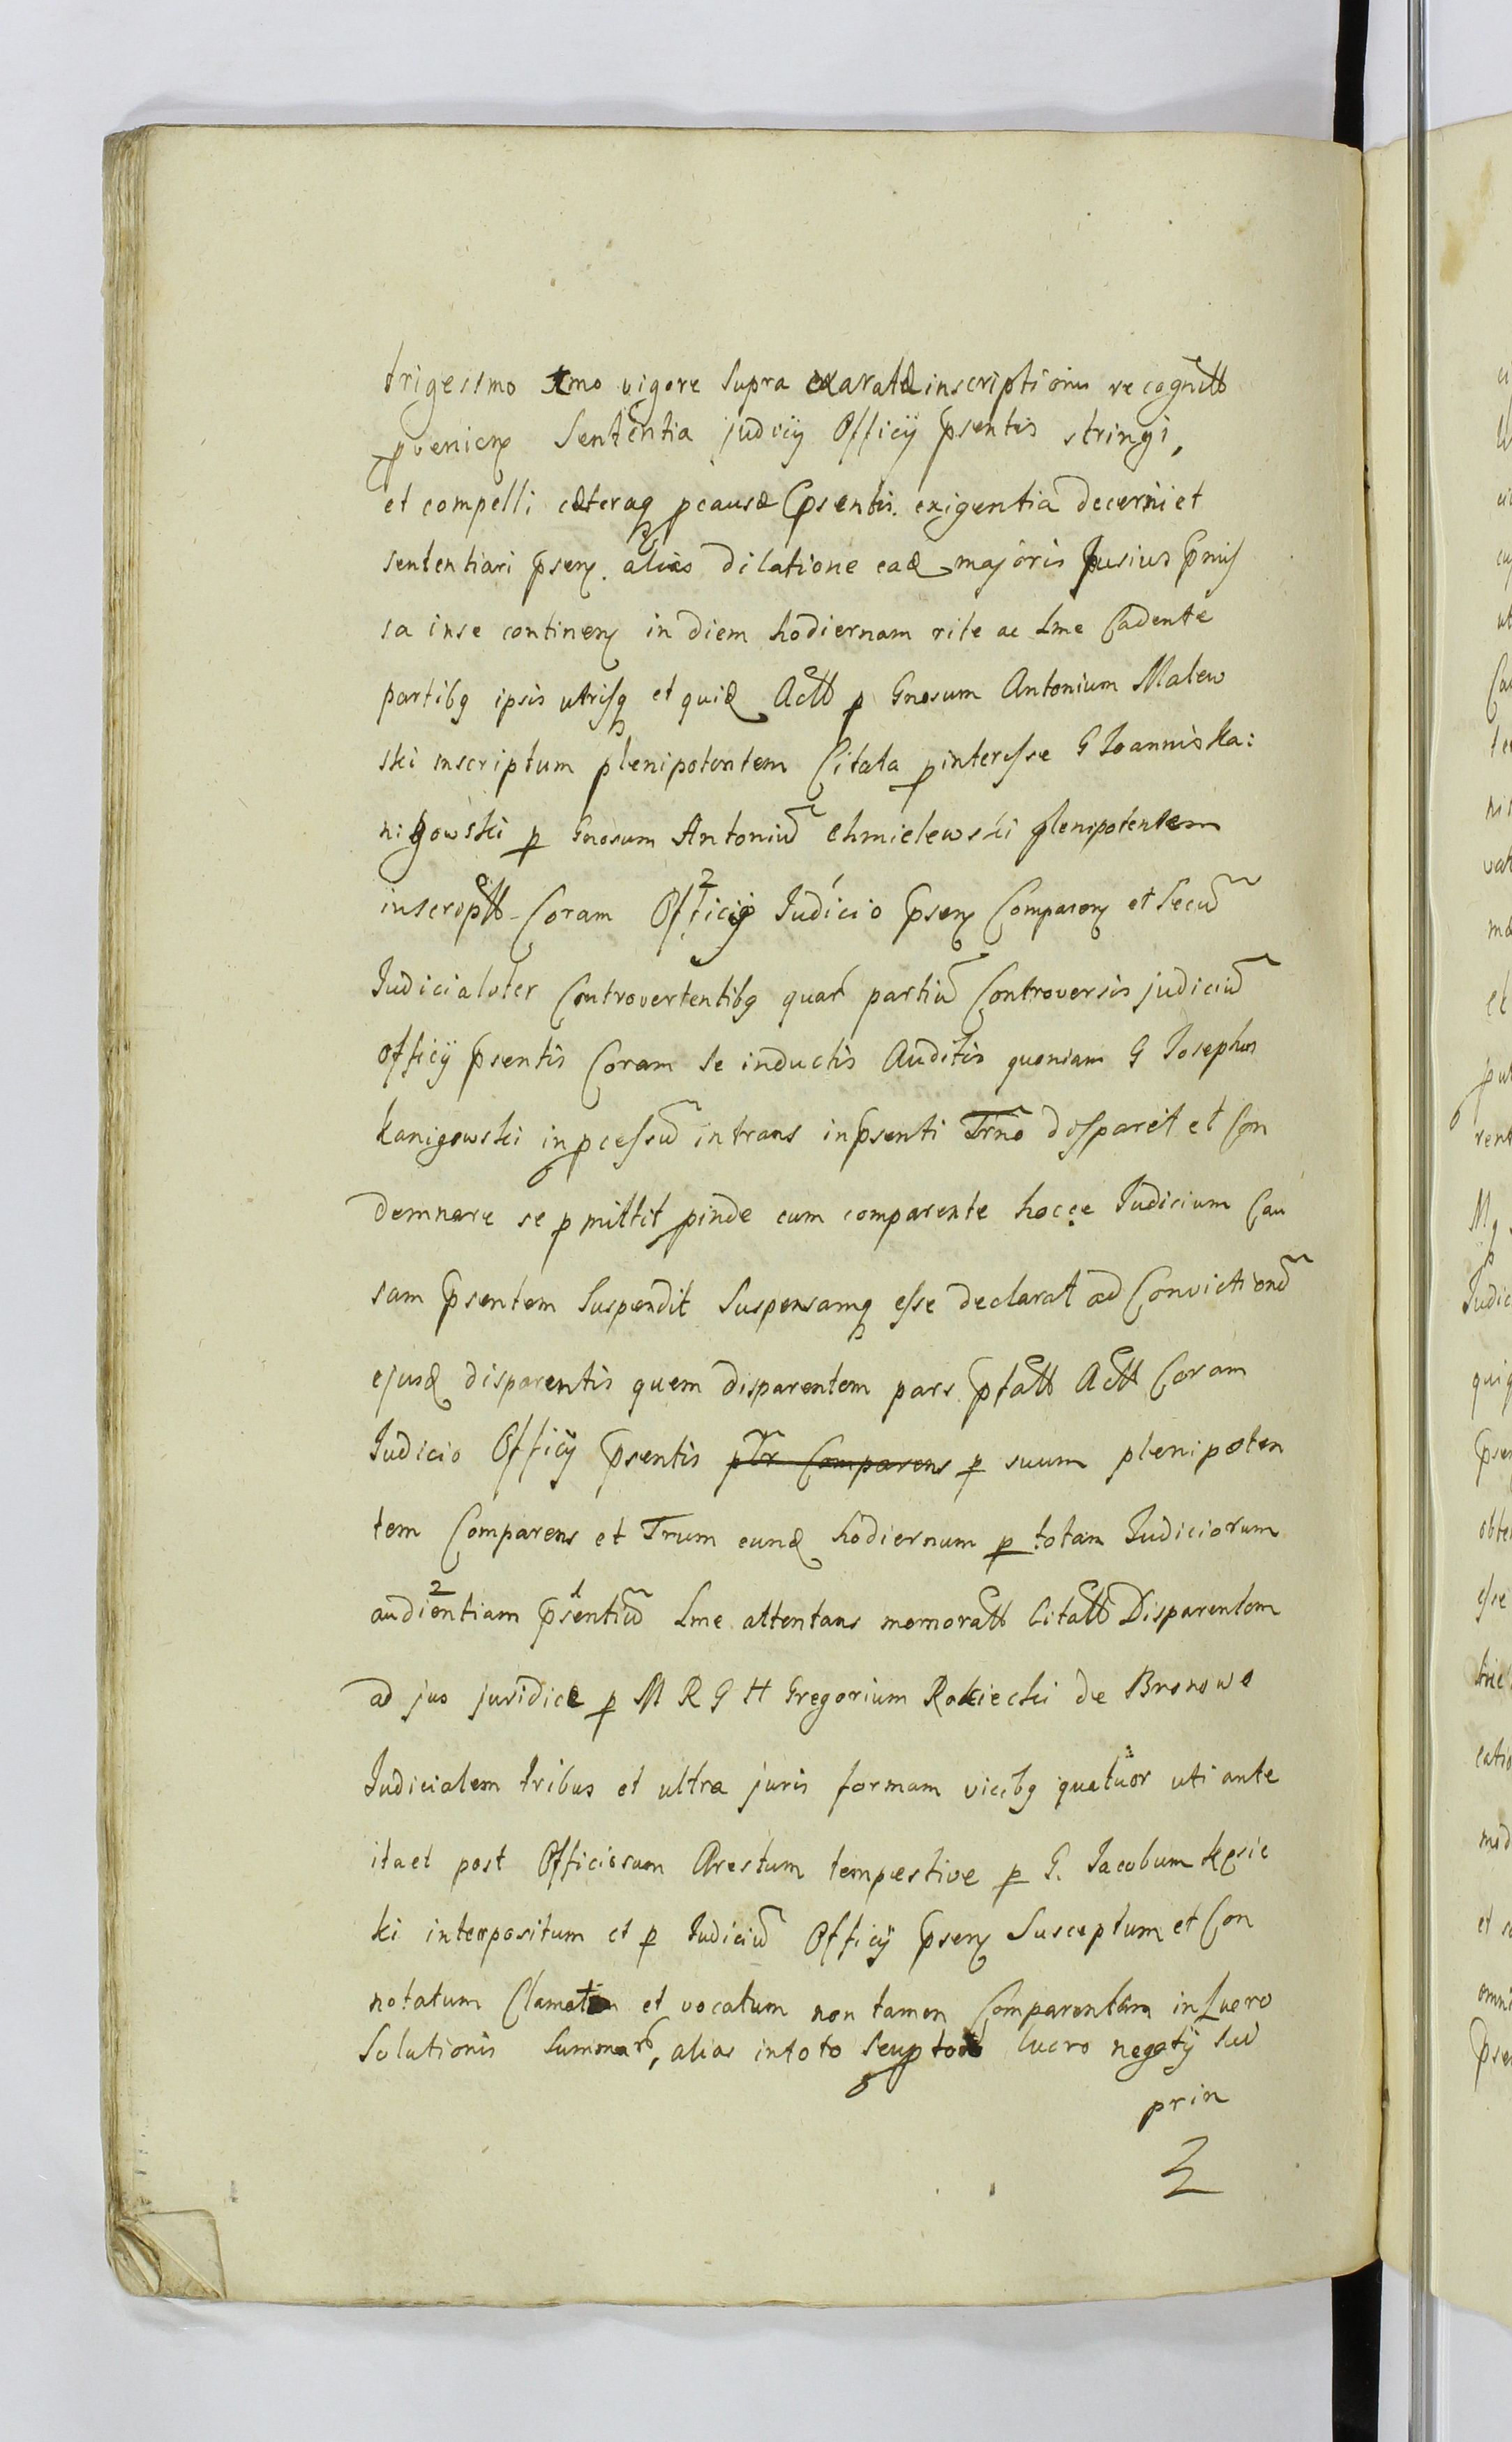 trigesimo 1mo vigore Supra exaratæ inscriptionis recognitt
pveniens Sententia judicij Officij Psentis stringi,
et compelli cæteraq p causæ Psentis exigentia decerni et
sententiari Psens. alias dilatione ead majoris Pmis
sa in se continens in diem hodiernam rite ac Lme Cadente
partibq ipsis utrisq et quid Actt p Gnosum Antonium Malew
ski inscriptum plenipotentem Citata p interesse G Joannis Ka:
nigowski p Gnosum Antoniũ Chmielewski plenipotentem
inscriptt Coram Officij Judicio Psens Comparens et Secũ
Judicialiter Controvertentibq quar partiũ Controversis judiciũ
officij Psentis Coram Se inductis Auditis quoniam G Josephus
Kanigowski in pcessũ intrans in Psenti Trno disparet et Con
demnare se p mittit pinde cum comparente hocce Judicium Cau
sam Psentem Suspendit Suspensamq esse declarat ad Convictionẽ
ejusd disparentis quem disparentem pars Pfatt Actt Coram
Judicio Officij Psentis ptr Comparens p suum plenipoten
tem Comparens et Trum eund hodiernum p totam Judiciorum
audientiam Psentiũ Lme attentans memoratt Citatt Disparentem
ad jus juridice p M R G H Gregorium Rokiecki de Bronowo
Judicialem tribus et ultra juris formam vicibq quatuor uti ante
ita et post Officiosum Arestum tempestive p G. Jacobum Kęsic
ki interpositum et p Judiciũ Officij Psens Susceptum et Con
notatum Clamatum et vocatum non tamen Comparentem in Luero
Solutionis Summar, alias in toto Seu ptoto lucro negotij Sui
prin